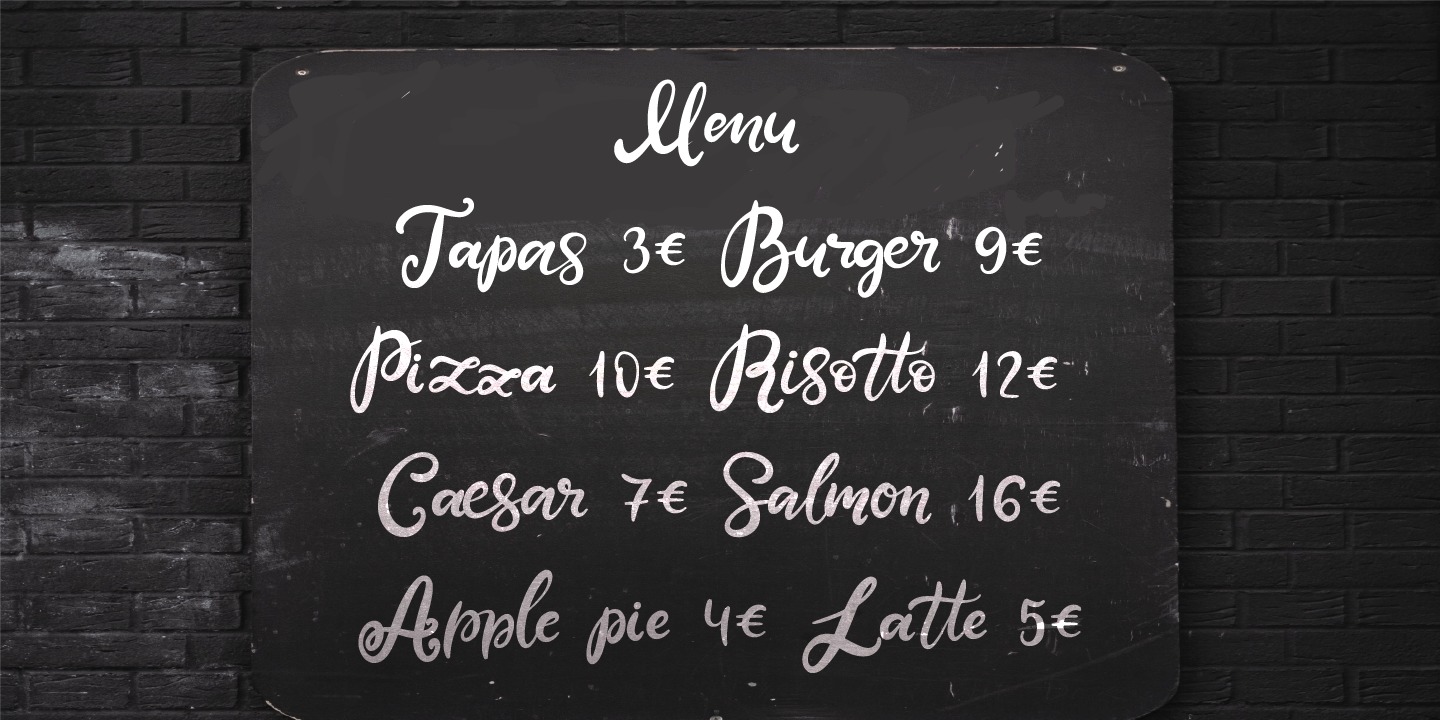 Menu
Tapas 3€ Burger 9€
Pizza 10€ Risotto 12€
Caesar 7€ Salmon 16€
Apple pie 4€ Latte 5€